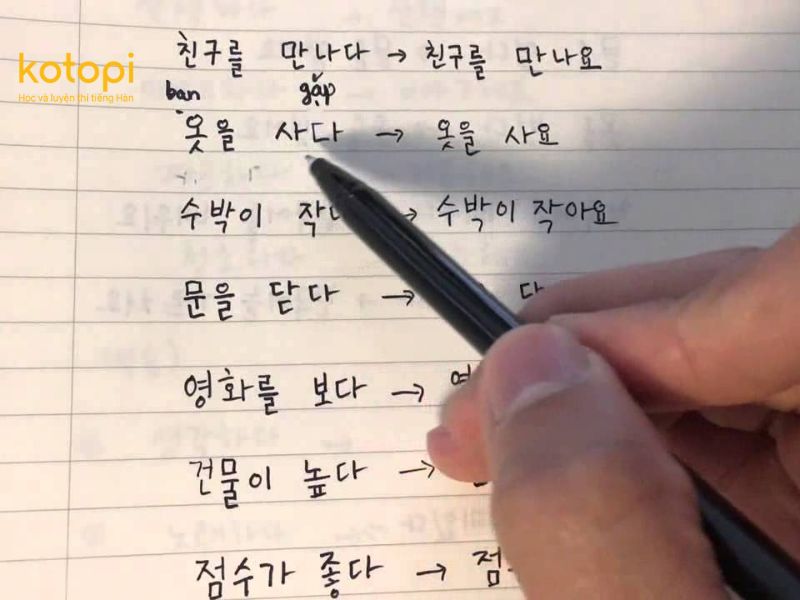 친구를 만나다 → 친구를 만나요
kotopi
Học và luyện thi tiếng Hàn
bạn gặp
옷을 사다 → 옷을 사요
수박이 → 수박이 작아요
문을 닫다 →
영화를 보다 →
건물이 높다 →
점수가 좋다 →